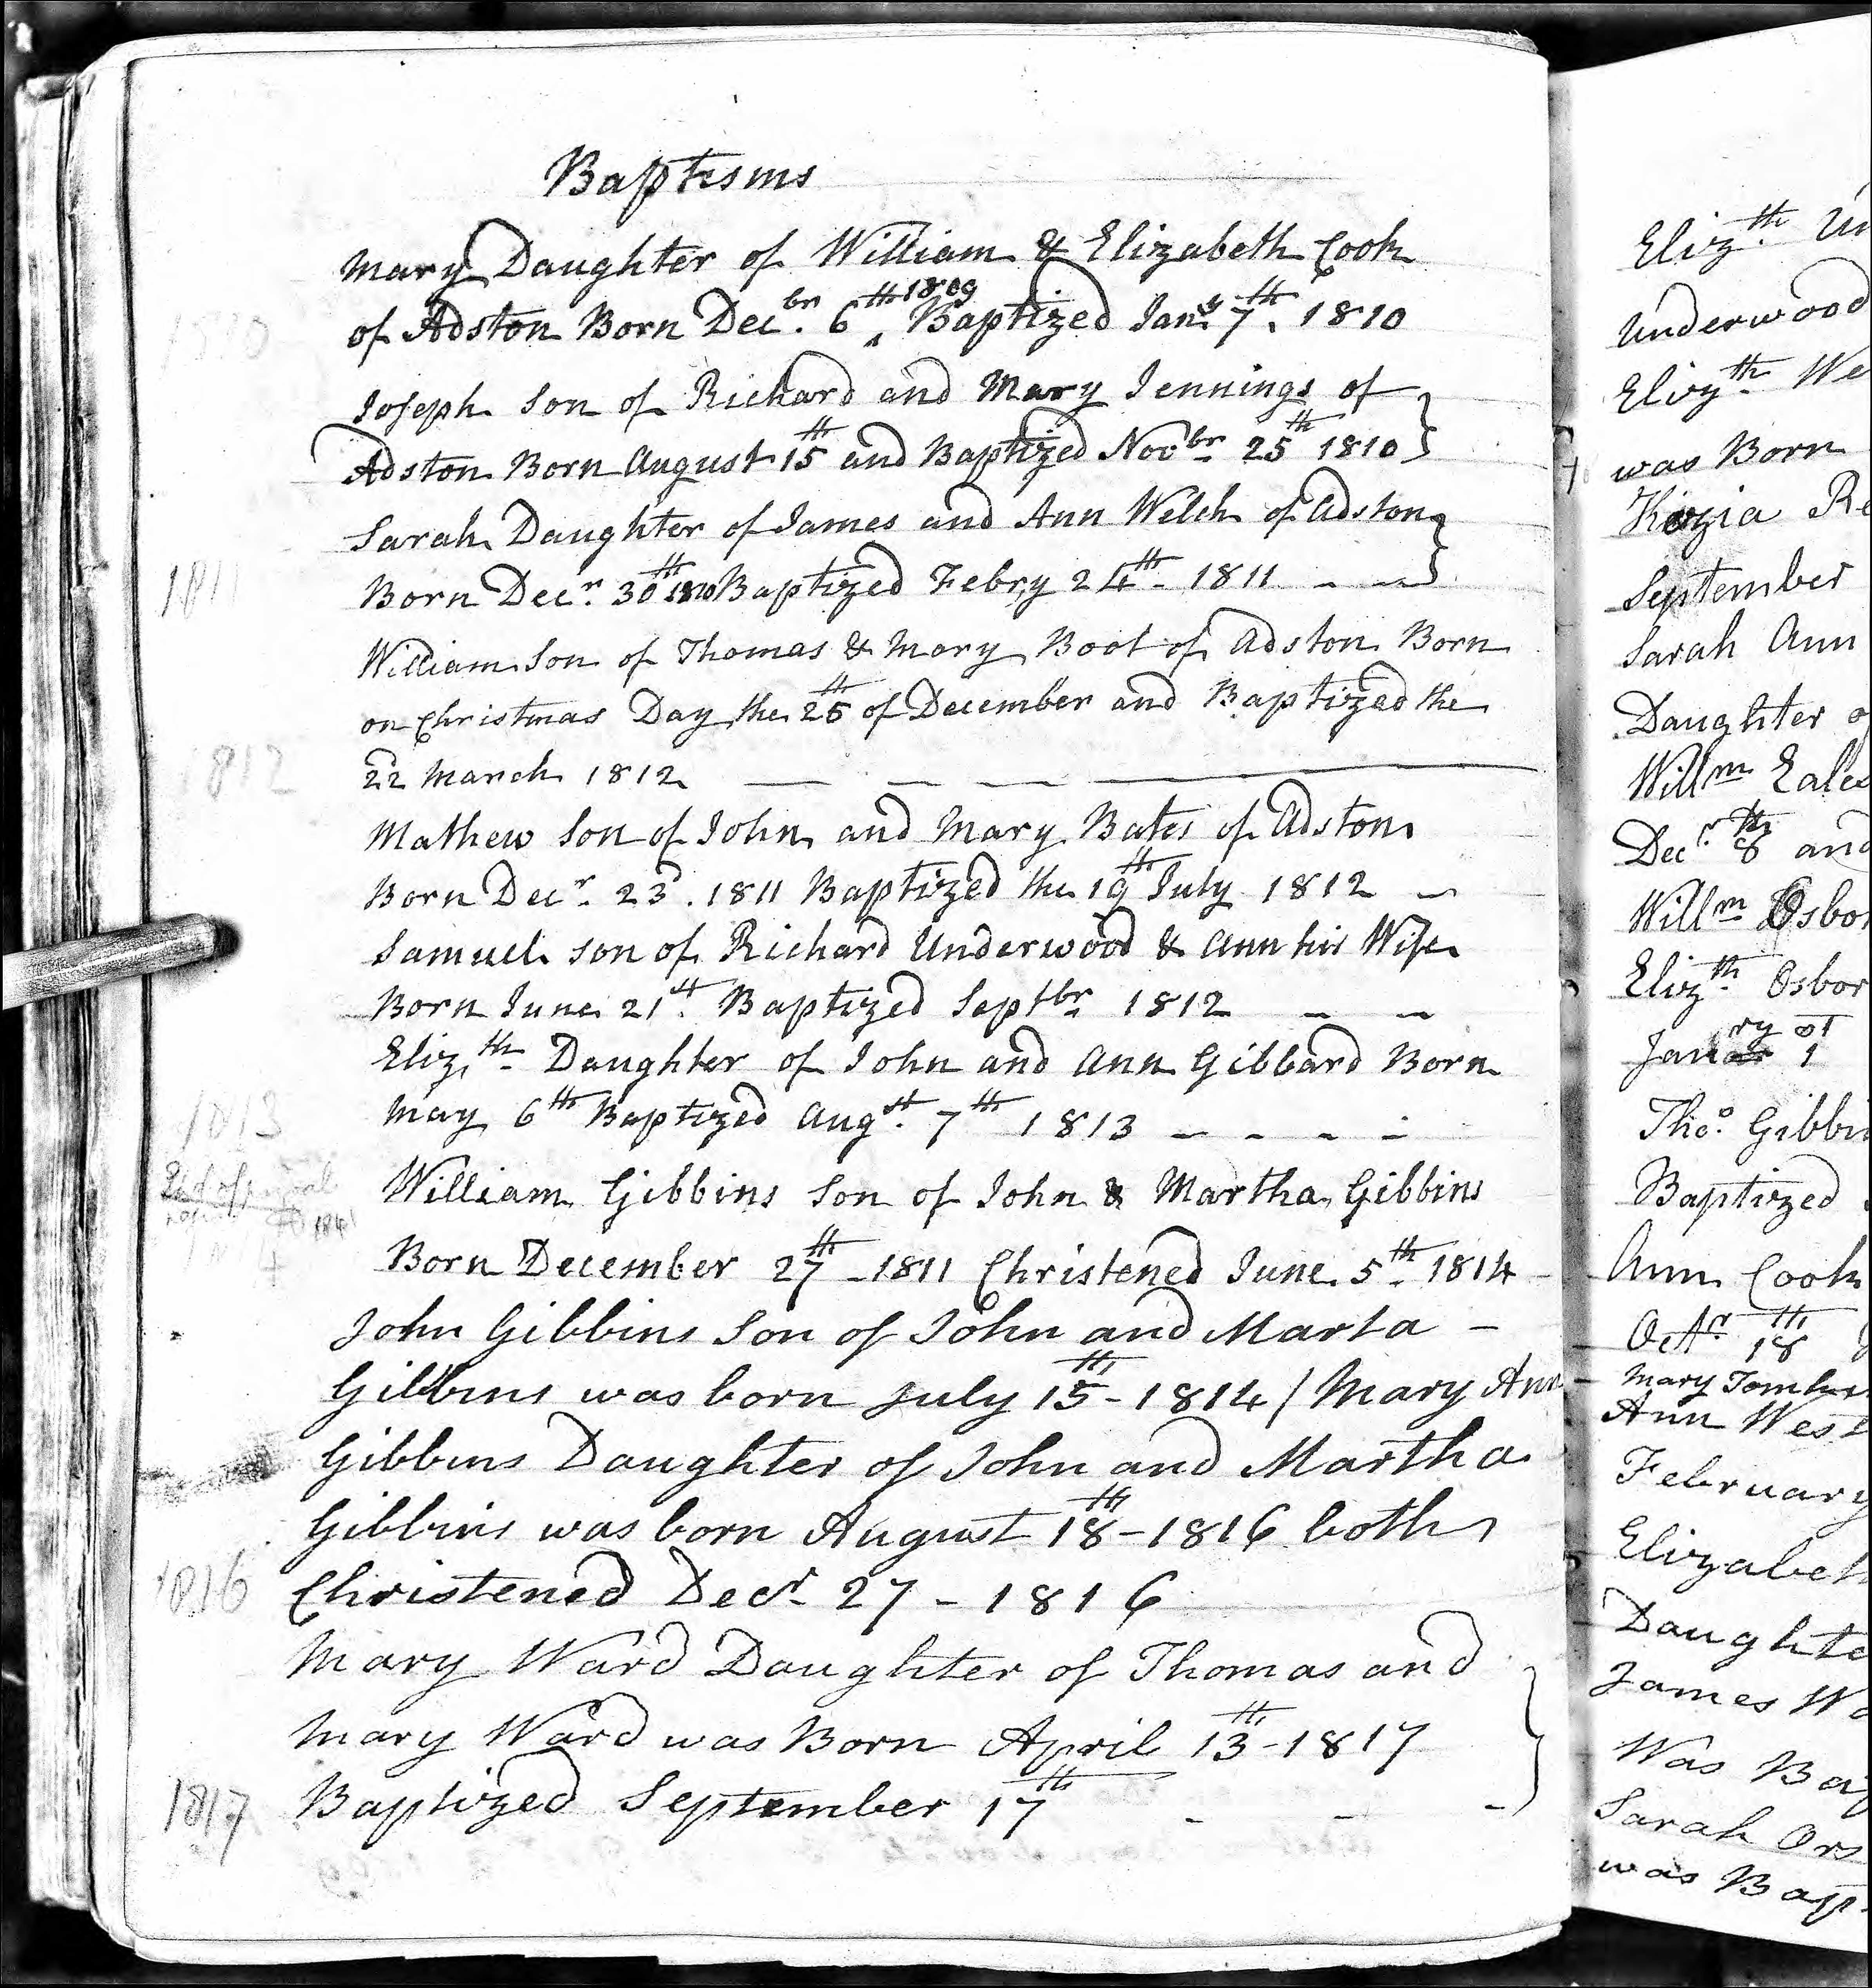 Baptisms
Mary Daughter of William & Elizabeth Cook
of Adston Born Decbr. 6th 1809 Baptized Jany. 7th. 1810
Joseph Son of Richard and Mary Jennings of
Adston Born August 15th and Baptized Novbr 25th 1810
Sarah Daughter of James and Ann Welch of Adston
1811
Born Decr. 30th 1810 Baptized Febry 24th - 1811 - -
William Son of Thomas & Mary Boot of Adston Born
on Christmas Day the 25th of December and Baptized the
1812
22d March 1812 — — — —
Mathew Son of John and Mary Bates of Adston
Born Decr. 23d. 1811 Baptized the 19th July 1812 -
Samuel son of Richard Underwood & Ann his Wife
Born June 21st. Baptized Septbr 1812 - -
Elizth Daughter of John and Ann Gibbard Born
1813
May 6th Baptized Augst. 7th 1813 - - - -
William Gibbins Son of John & Martha Gibbins
Born December 27th - 1811 Christened June 5th. 1814
John Gibbins Son of John and Marta -
Gibbins was born July 15th - 1814 / Mary Ann
Gibbins Daughter of John and Martha
Gibbins was born August 18th - 1816 both
1816
Christened Decr - 27 - 1816
Mary Ward Daughter of Thomas and
Mary Ward was Born April 13th - 1817
1817
Baptized September 17th - - -
Elizth
Underwood
Elizth We
was Born
Kezia Re
September
Sarah Ann
Daughter o
Willm Eales
Decr. 8th and
Willm Osbor
Elizth Osbor
Janry 1st
Tho. Gibbin
Baptized
Ann Cook
Octr 18th
Mary Tombs
Ann West
February
Elizabeth
Daughte
James Wa
Was Bap
Sarah Ors
was Bap